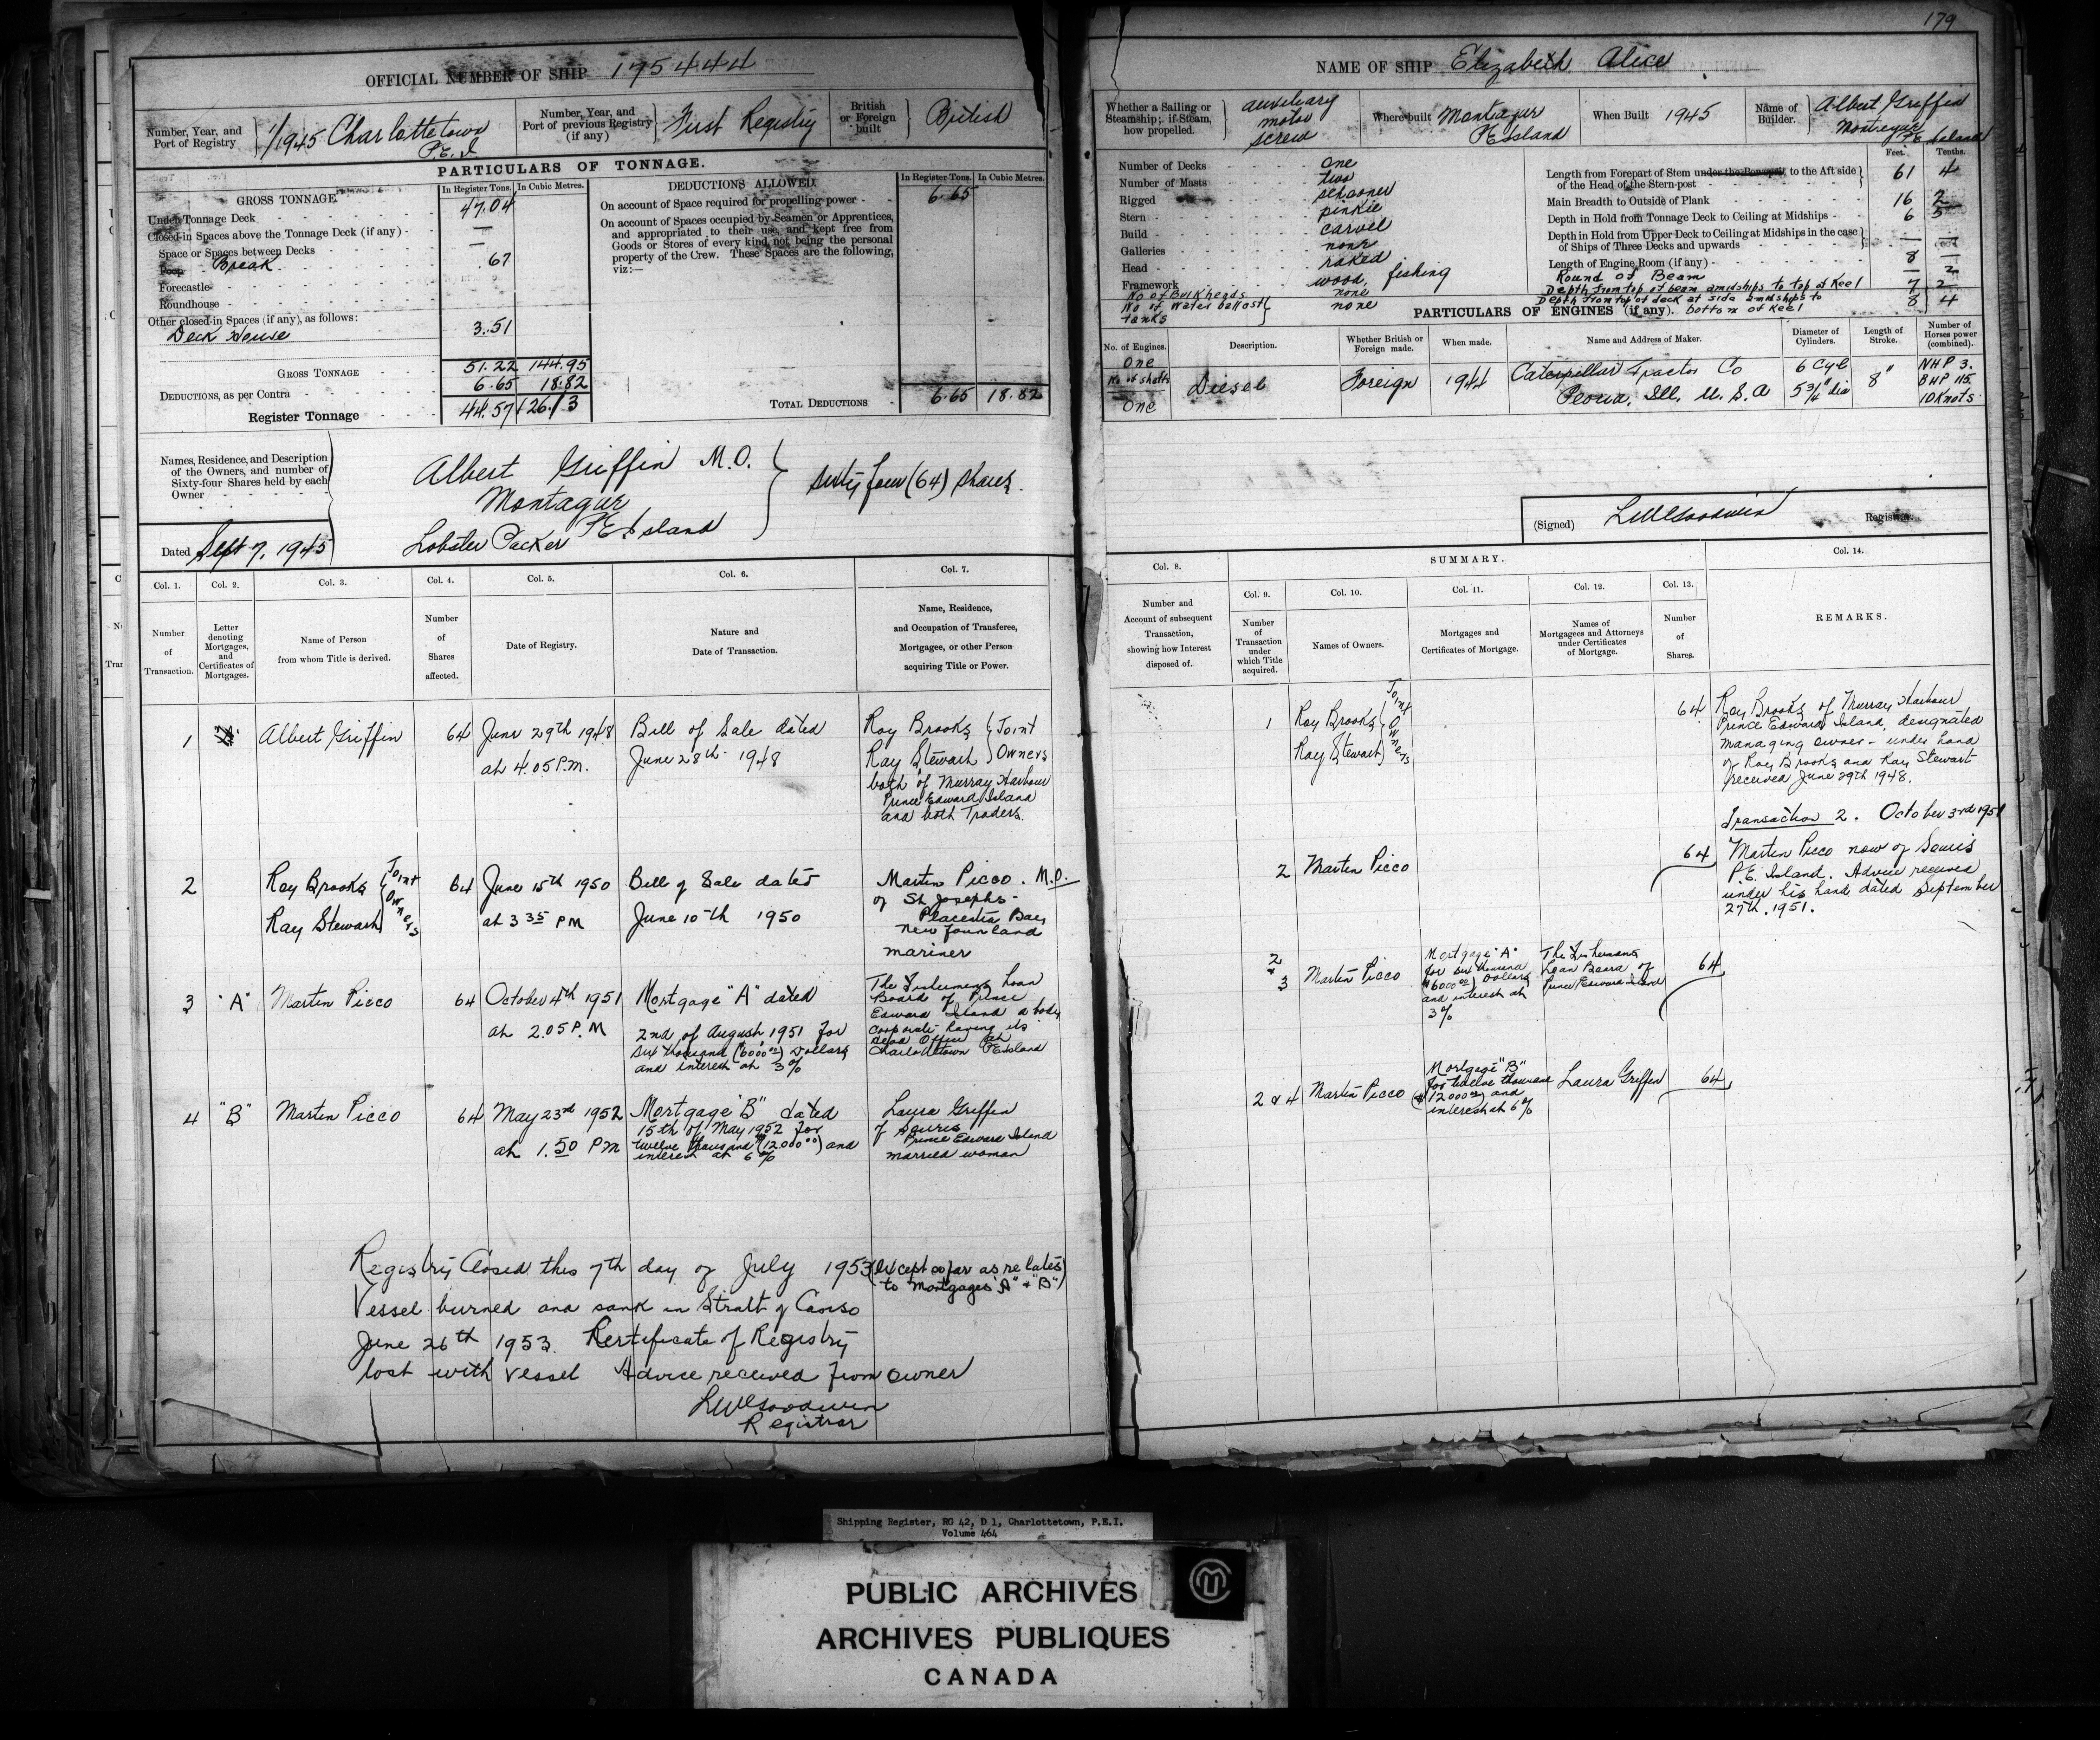 179
OFFICIAL NUMBER OF SHIP 175444
Number, Year, and Port of Registry
1/1945 Charlottetown P.E.I
Number, Year, and Port of previous Registry (if any)
First Registry
British or Foreign built
British
PARTICULARS OF TONNAGE.
GROSS TONNAGE
In Register Tons.
In Cubic Metres.
Under Tonnage Deck 47.04
Closed-in Spaces above the Tonnage Deck (if any) - —
Space or Spaces between Decks —
Poop Break .67
Forecastle
Roundhouse
Other closed-in Spaces (if any), as follows:
Deck House 3.51
GROSS TONNAGE 51.22 144.95
DEDUCTIONS, as per Contra 6.65 18.82
Register Tonnage 44.57 126.13
DEDUCTIONS ALLOWED.
In Register Tons.
In Cubic Metres.
On account of Space required for propelling power 6.65
On account of Spaces occupied by Seamen or Apprentices,
and appropriated to their use, and kept free from
Goods or Stores of every kind, not being the personal
property of the Crew. These Spaces are the following,
viz:—
TOTAL DEDUCTIONS 6.65 18.82
Names, Residence, and Description
of the Owners, and number of
Sixty-four Shares held by each
Owner
Albert Griffin M.O.
Montague
P E Island
Lobster Packer
Sixty four (64) shares.
Dated Sept 7, 1945
Col. 1.
Number of Transaction.
Col. 2.
Letter denoting Mortgages, and Certificates of Mortgages.
Col. 3.
Name of Person from whom Title is derived.
Col. 4.
Number of Shares affected.
Col. 5.
Date of Registry.
Col. 6.
Nature and Date of Transaction.
Col. 7.
Name, Residence, and Occupation of Transferee, Mortgagee, or other Person acquiring Title or Power.
1 "A" Albert Griffin 64 June 29th 1948 at 4.05 P.M.
Bill of Sale dated June 28th 1948
Roy Brooks
Ray Stewart
Joint Owners
both of Murray Harbour
Prince Edward Island
and both Traders.
2 Roy Brooks
Ray Stewart
Joint Owners
64 June 15th 1950 at 3 35 PM
Bill of Sale dated June 10th 1950
Martin Picco. M.O.
of St Josephs -
Placentia Bay,
Newfounland
mariner
3 "A" Martin Picco 64 October 4th 1951 at 2.05 P.M
Mortgage "A" dated
2nd of August 1951 for
six thousand (6000 00) Dollars
and interest at 3%
The Fishermens Loan
Board of Prince
Edward Island a body
corporate having its
Head Office at
Charlottetown PEIsland
4 "B" Martin Picco 64 May 23rd 1952 at 1.50 PM
Mortgage "B" dated
15th of May 1952 for
twelve thousand (12000 00) and
interest at 6%
Laura Griffin
of Souris
Prince Edward Island
married woman
Registry Closed this 7th day of July 1953 (except so far as relates
to Mortgages "A" & "B")
Vessel burned and sank in Strait of Canso
June 26th 1953. Certificate of Registry
lost with vessel Advice received from owner
LW Goodwin
Registrar
NAME OF SHIP Elizabeth Alice
Whether a Sailing or Steamship; if Steam, how propelled.
auxiliary
motor
screw
Where built Montague
PEIsland
When Built 1945
Name of Builder.
Albert Griffin
Montague
P.E. Island
Number of Decks One
Number of Masts two
Rigged schooner
Stern pinkie
Build carvel
Galleries none
Head raked
Framework wood, fishing
No of Bulkheads none
No of Water ballast tanks none
Feet. Tenths.
Length from Forepart of Stem under the Bowsprit to the Aft side
of the Head of the Stern-post 61 4
Main Breadth to Outside of Plank 16 2
Depth in Hold from Tonnage Deck to Ceiling at Midships 6 5
Depth in Hold from Upper Deck to Ceiling at Midships in the case
of Ships of Three Decks and upwards — —
Length of Engine Room (if any) 8 —
Round of Beam — 2
Depth from top of beam amidships to top of Keel 7 2
Depth from top of deck at side amidships to
bottom of Keel 8 4
PARTICULARS OF ENGINES (if any).
No. of Engines.
One
No of shafts
One
Description.
Diesel
Whether British or Foreign made.
Foreign
When made.
1944
Name and Address of Maker.
Caterpillar Tractor Co
Peoria, Ill, U.S.A
Diameter of Cylinders.
6 Cyl
5 3/4" dia
Length of Stroke.
8"
Number of Horses power (combined).
NHP 3.
BHP 115.
10 Knots
(Signed) LW Goodwin Registrar.
Col. 8.
Number and Account of subsequent Transaction, showing how Interest disposed of.
SUMMARY.
Col. 9.
Number of Transaction under which Title acquired.
Col. 10.
Names of Owners.
Col. 11.
Mortgages and Certificates of Mortgage.
Col. 12.
Names of Mortgagees and Attorneys under Certificates of Mortgage.
Col. 13.
Number of Shares.
Col. 14.
REMARKS.
1 Roy Brooks
Ray Stewart
Joint Owners
64
Roy Brooks of Murray Harbour
Prince Edward Island, designated
managing owner - under hand
of Roy Brooks and Ray Stewart
received June 29th 1948.
Transaction 2. October 3rd 1951
2 Martin Picco 64
Martin Picco now of Souris
P.E. Island. Advice received
under his hand dated September
27th, 1951.
2 & 3 Martin Picco
Mortgage "A"
for six thousand
$6000 00) Dollars
and interest at
3%
The Fishermens
Loan Board of
Prince Edward Island
64
2 & 4 Martin Picco
Mortgage "B"
for twelve thousand
($12000 00) and
interest at 6%
Laura Griffin 64
Shipping Register, RG 42, D 1, Charlottetown, P.E.I.
Volume 464
PUBLIC ARCHIVES
ARCHIVES PUBLIQUES
CANADA